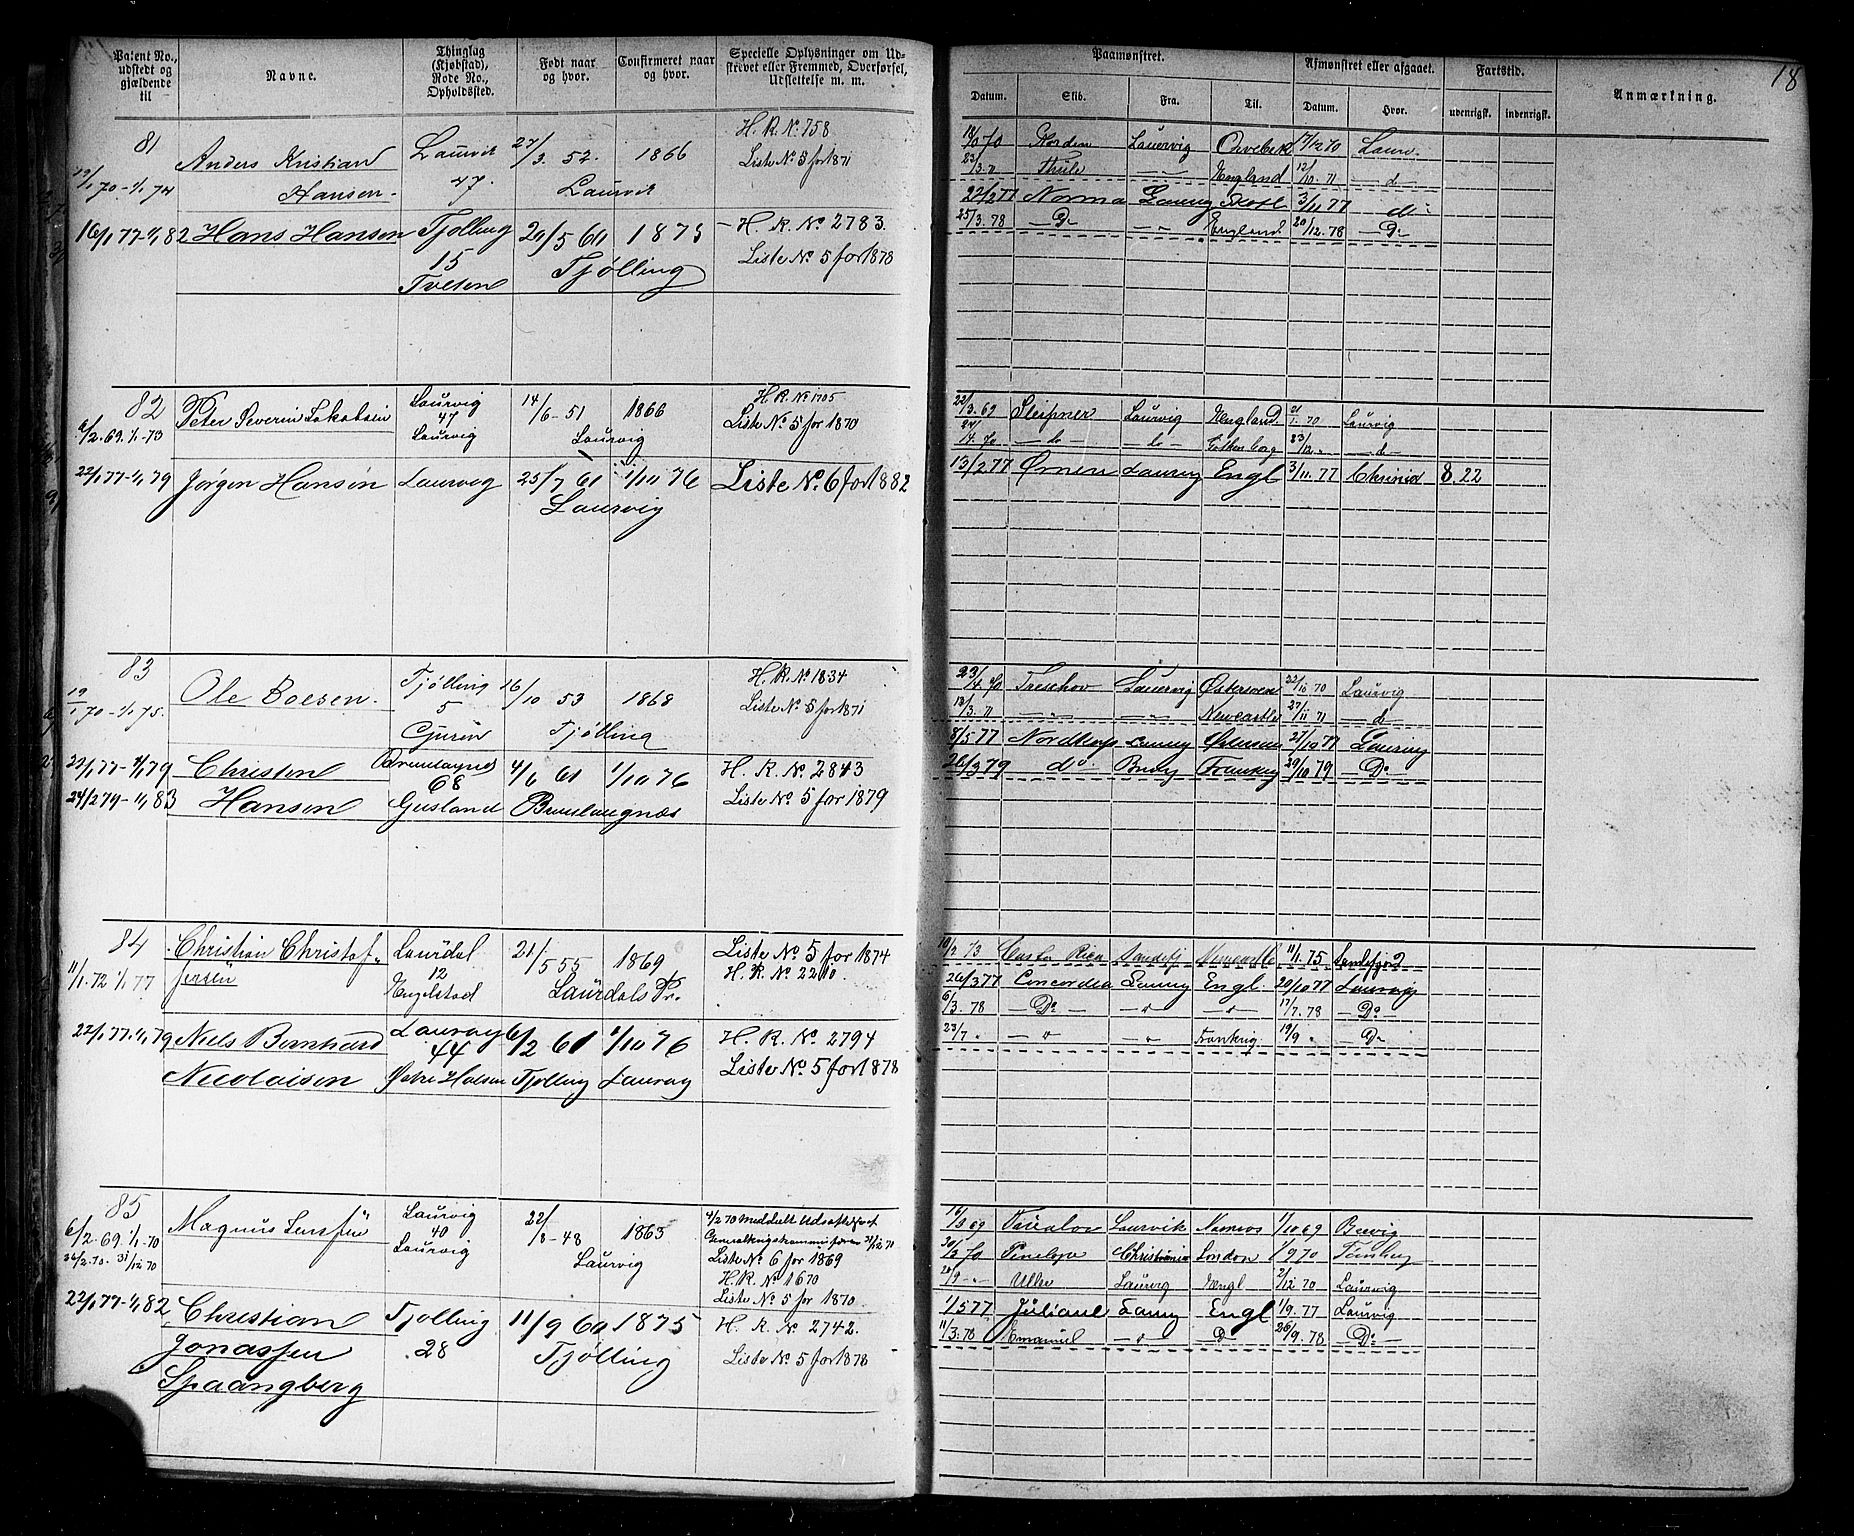 18
Patent No., udstedt og gjældende til
Navne.
Thinglag (Kjøbstad), Rode No., Opholdssted.
Født naar og hvor.
Confirmeret naar og hvor.
Specielle Oplysninger om Udskrevet eller Fremmed, Overførsel, Udslettelse m. m.
Paamønstret.
Afmønstret eller afgaaet.
Fartstid.
Anmærkning.
Datum. Skib. Fra. Til. Datum. Hvor. udenrigsk. indenrigsk.
81
Anders Kristian Laurvik 27/3 52. 1866 H. R. No. 758
70 - 1/1 74 Hansen. 47. Laurvik Liste No. 5 for 1871
Norden Laurvig 17/12 70 Laurv.
Thule — England 12/10. 71 — d
16/1 77 - 1/1 82 Hans Hansen Tjølling 29/5 60 1875 - H. R. No 2783.
15 Tjølling Liste No. 5 for 1878
Tveten
22/2 77 Norma Laurvig Skotl 3/11 77 do
25/3. 78 — Do — England. 20/12. 78 — Do
82
2. 69. 1/1 - 73 Peter Severin Jakobsen Laurvig 14/6 - 51 1866 H. R. No 1705
47 Laurvig Liste No. 5 for 1870
Laurvig
22/3. 69 Sleipner Laurvig England. 21/1. 70 Laurvig
24/4. 70 — do — — do — Gothenborg 23/12. — d —
22/1 77 - 1/1 79 Jørgen Hansen Laurvig 25/7 61 1/10 76 Liste No. 6 for 1882
Laurvig
13/2 77 Ørnen Laurvig Engl 3/11. 77 Chrinia 8. 22
83
19/1. 70 - 1/1. 75. Ole Boesen. Tjølling 16/10 53 1868 H. R. No. 1834
5 Tjølling Liste No. 5 for 1871
23/4. 70 Treschov Laurvig Østersøen 22/10 70 Laurvig
13/3. 71 — " — — " — Newcastle 27/11 71 — d
22/1 77 - 1/1 79 Christen Brunlagnes 4/6 61 1/10 76 H. R. No. 2843
24/2 79 - 1/1 83 Hansen 68 Gusland Brunlaugnæs Liste No. 5 for 1879
8/5 77 Laurvig Østersøen 27/10 77 Laurvig
26/3 79 do Frankrig 29/10 79 — Do
84
11/1. 72 1/1 77 Christian Christof- Laurdal 21/5 55 1869 Liste No. 5 for 1874
fersen 12 Laurdals Pr. H. R. No 2210.
Engelstad
10/2 73 Costa Rica Sandefj Newcastle 11/1. 75 Sandefjord
22/1 77 - 1/1 79 Niels Bernhard Laurvig 6/2 61 1/10 76 H. R. No. 2794
Nicolaisen 44 Østre Halsen Tjølling Laurvig Liste No. 5 for 1878
26/3 77 Concordia Laurvig Engl. 20/10 77 Laurvig
6/3. 78 — Do — — " — — " — 17/7. 78 — Do
23/7 " — " — — " — Frankrig. 19/9 " — Do
85
6/2. 69. 1/1. 70 Magnus Laurvig 22/8 - 48 1863
40 Laurvig
Laurvig Liste No. 6 for 1869
H. R. No. 1670
Liste No. 5 for 1870.
Laurvik Namsos 1/10 69 Brevig
Penelope Christiania London 9 70
Ulke Laurvig Engl 2/12 70 Laurvig
22/1 77 - 1/1 82 Christian Tjølling 11/9 60 1875 H. R. No. 2742.
Jonassen 28 Tjølling Liste No. 5 for 1878
Spaangberg
1/5 77 Juliane Laurvig Engl 1/9. 77 Laurvig
11/3. 78 Emanuel — " — Do 26/9. 78 — Do